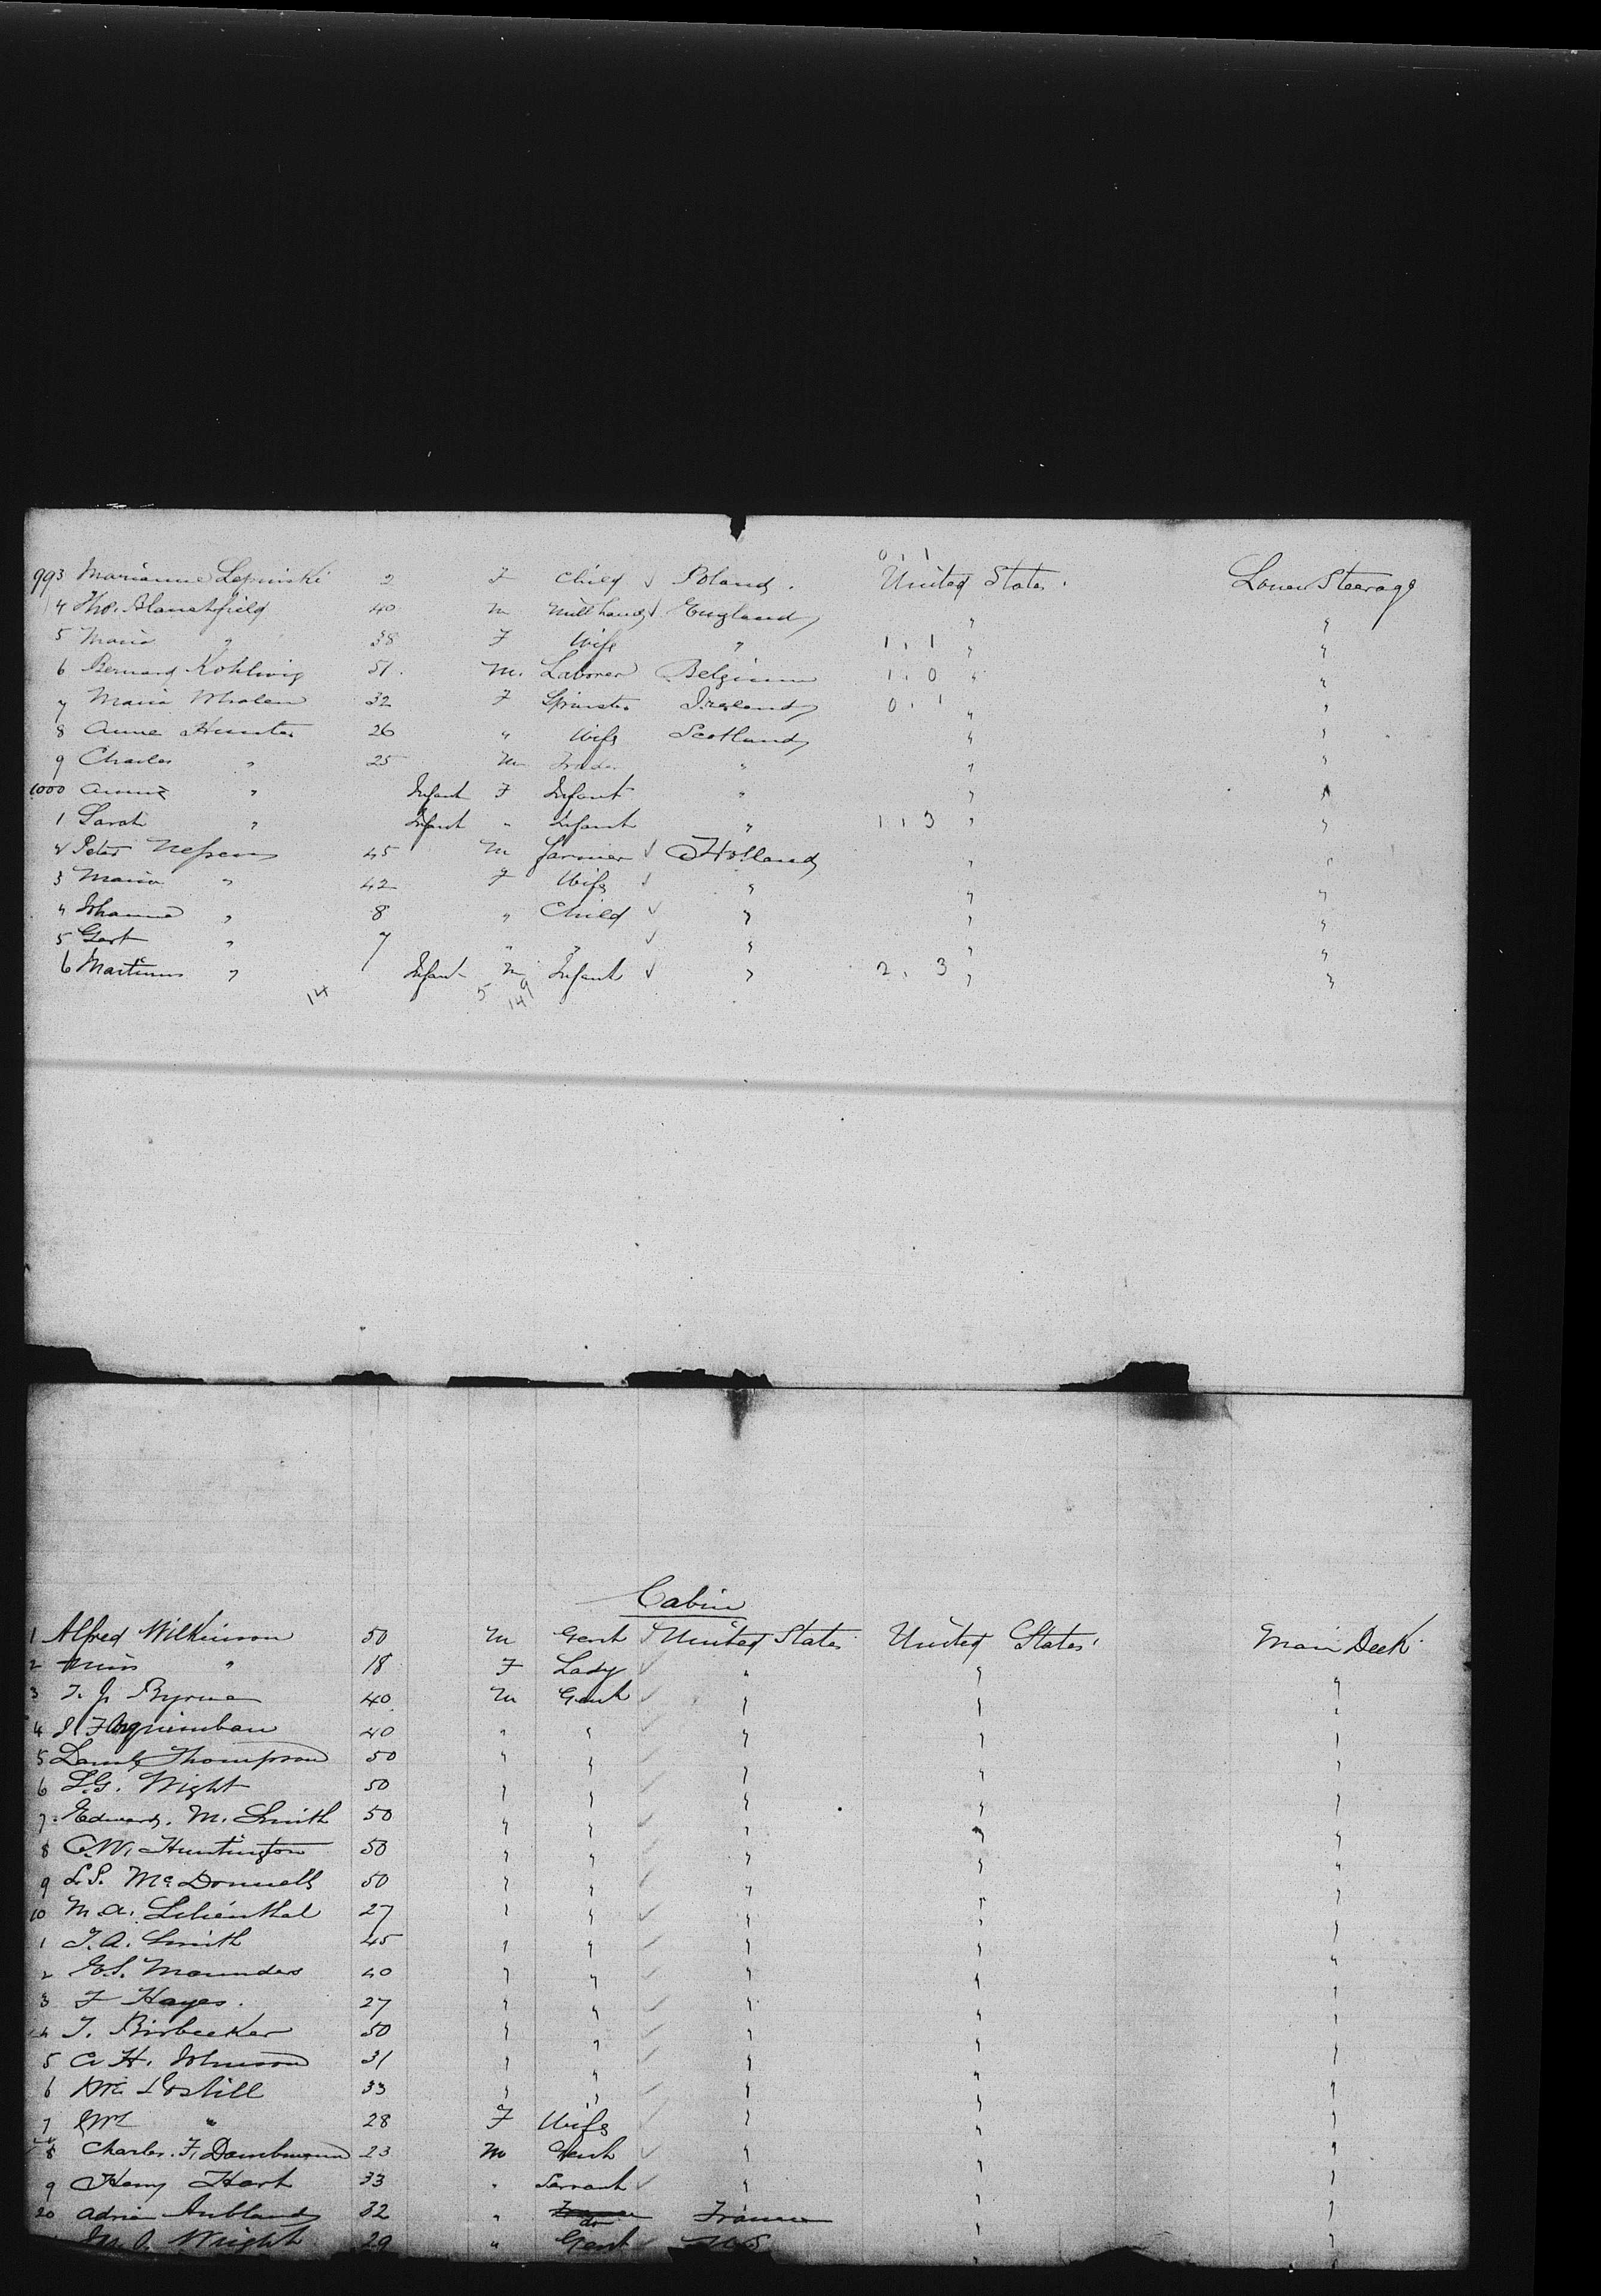 0 1 1
993 Marianne Lepinski 2 F Child √ Poland. United States. Lower Steerage
4 Tho. Blanchfield 40 m Mill hand √ England " "
5 Maria " 38 F Wife " 1, 1 " "
6 Bernard Kohlwig 51. M. Laborer Belgium 1. 0 " "
7 Maria Whalen 32 F Spinster Ireland 0. 1 " "
8 Anne Hunter 26 " Wife Scotland " "
9 Charles " 25 M Trader " " "
1000 Annie " Infant F Infant " " "
1 Sarah " Infant " Infant " 1 1 3 " "
2 Peter Nessens 45 M farmer √ Holland " "
3 Maria " 42 F Wife √ " " "
4 Johanna " 8 " Child √ " " "
5 Gert " 7 " " √ " " "
6 Martinus " Infant M Infant √ " 2. 3 " "
14 5 149
Cabin
1 Alfred Wilkinson 50 M Gent √ United States United States. Main Deck
2 Miss " 18 F Lady √ " " "
3 T. J. Byrne 40 M Gent √ " " "
4 J. F. Arguimbau 40 " " √ " " "
5 Thompson 50 " " √ " " "
6 L.G. Wight 50 " " √ " " "
7. Edward. M. Smith 50 " " √ " " "
8 C.W. Huntington 50 " " √ " " "
9 L.S. McDonnell 50 " " √ " " "
10 M.A. Lilienthal 27 " " √ " " "
1 T.A. Smith 45 " " √ " " "
2 Maunders 40 " " √ " " "
3 F Hayes. 27 " " √ " " "
4 T. Birbecker 50 " " √ " " "
5 A H. Johnson 31 " " √ " " "
6 Mr Postill 33 " " √ " " "
7 Mrs " 28 F Wife √ " " "
8 Charles. F. Dambmann 23 M Gent √ " " "
9 Henry Hart 33 " Servant √ " " "
20 Adrien 32 " do France " "
Wright 29 " Gent √ U.S. " "